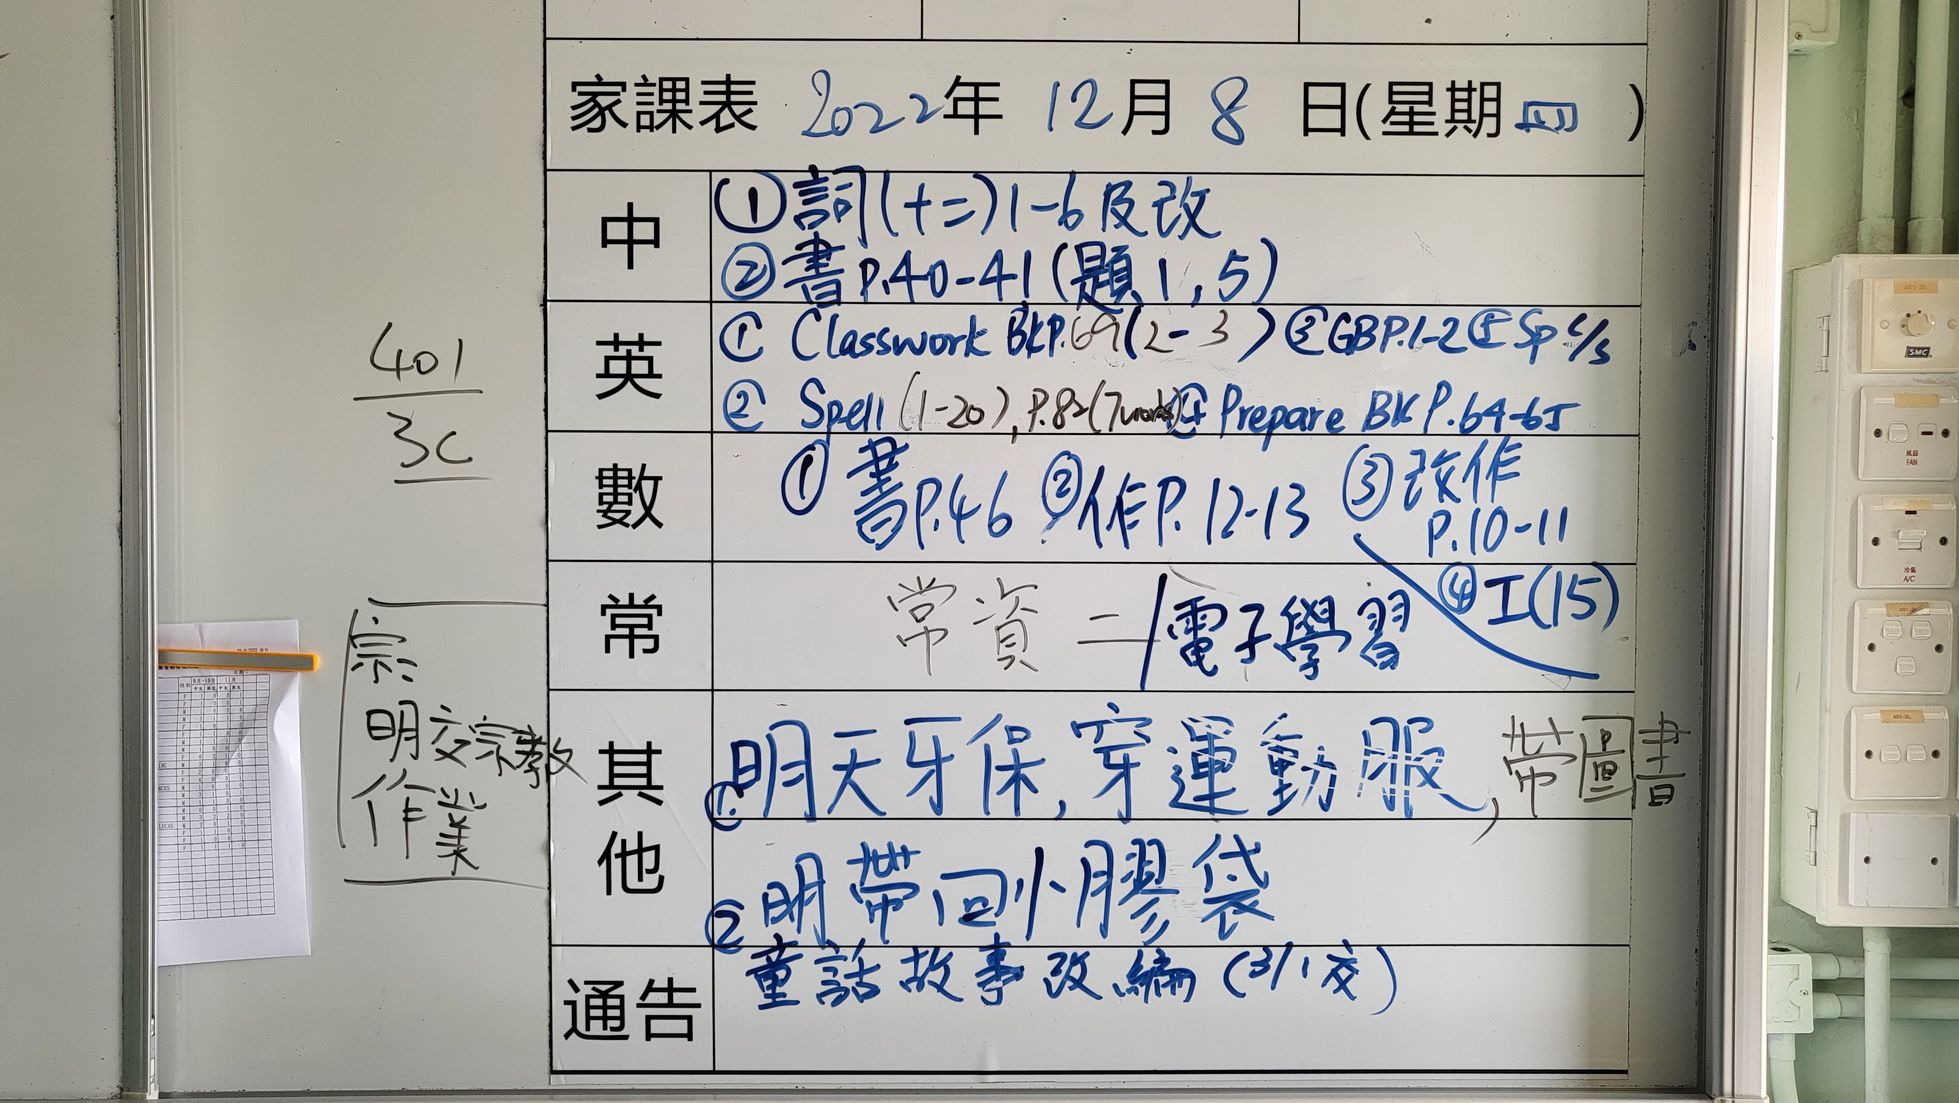 家課表 2022年 12月 8 日(星期四)
中
①詞(十二)1-6及改
②書P.40-41(題1,5)
英
① Classwork BkP.69(2-3) ③GBP.1-2⑤Sp c/s
② Spell (1-20), P.82(7words)④Prepare BK P.64-65
數
①書P.46 ②作P.12-13 ③改作
P.10-11
④工(15)
常
常資二/電子學習
其他
①明天牙保,穿運動服,帶圖書
②明帶回小膠袋
通告
童話故事改編(3/1交)
401
3C
宗:
明交宗教
作業
SMC
風扇
FAN
冷氣
A/C